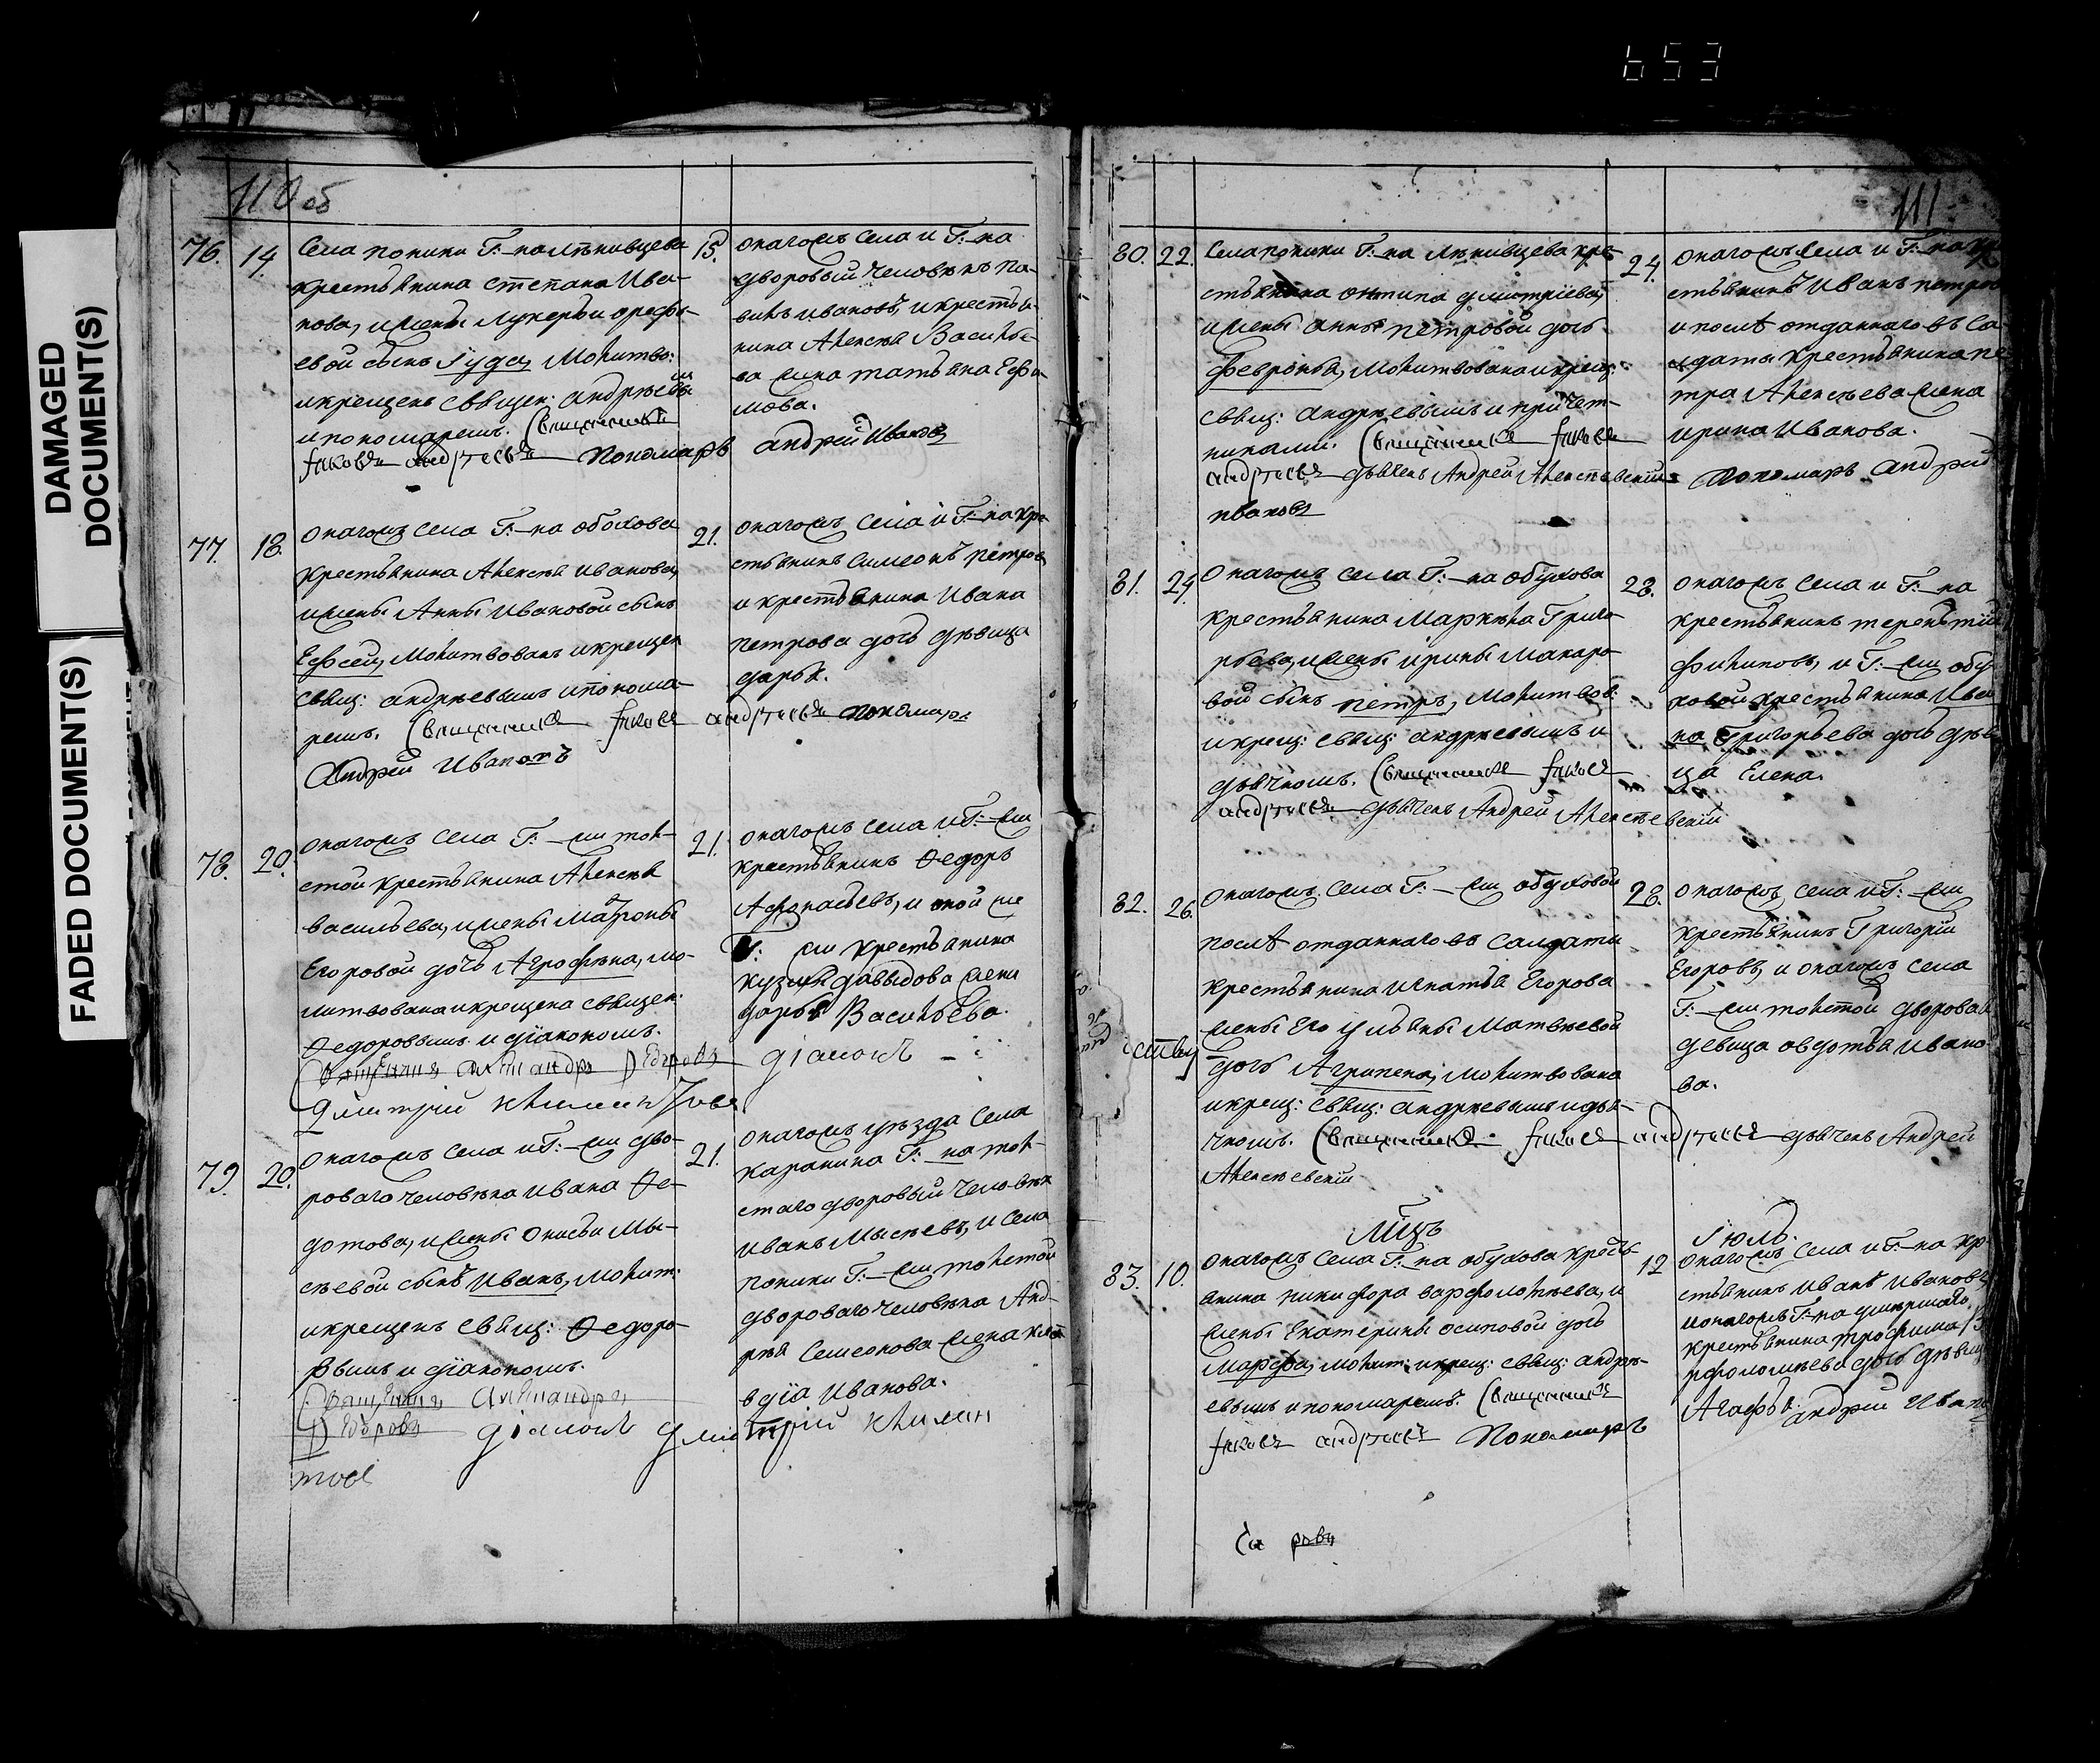 653
DAMAGED
DOCUMENT(S)
FADED DOCUMENT(S)
110 об
76. 14. Села поники Г:на Лѣнивцева
крестьянина степана Ива-
нова, и жены лукерьи орефь-
евой сынъ Іуда, Молитво:
и крещенъ священ: андрѣевы
и пономаремъ. Священникъ
Іаковъ андреевъ Пономарь
15. онагожъ села и Г:на
дворовый человѣкъ па-
велъ ивановъ, и крестья-
нина Алексѣя Василье-
ва жена татьяна Ефи-
мова.
андрей Ивановъ
77. 18. онагожъ села Г:на обухова
крестьянина Алексѣя иванова,
и жены Анны Ивановой сынъ
Евсей, Молитвованъ и крещен
свящ: андрѣевымъ и понома-
ремъ. Священникъ Іаковъ андреевъ пономарь
Андрей Ивановъ
21. онагожъ села и Г:на кре-
стьянинъ симеонъ петровъ
и крестьянина Ивана
петрова дочь дѣвица
дарья.
78. 20. онагожъ села Г:жи тол-
стой крестьянина Алексѣя
васильева, и жены матроны
Егоровой дочь Агрофѣна, мо-
литвована и крещена священ:
Ѳедоровымъ и діакономъ.
Священникъ Александръ Ѳедоровъ діаконъ
Дмитрій Климентовъ
21. онагожъ села и Г:жи
крестьянинъ Ѳедоръ
Афонасьевъ, и той же
Г:жи крестьянина
кузмы давыдова жена
дарья Васильева.
79. 20. Онагожъ села и Г:жи дво-
роваго человѣка ивана Ѳе-
дотова, и жены Онисьи Мы-
сѣевой сынъ иванъ, молит:
и крещенъ свящ: Ѳедоро-
вымъ и діакономъ.
Священникъ Александръ
Ѳедоровъ діаконъ Дмитрій Климен
товъ
21. онагожъ уѣзда села
каранина Г:на тол-
стаго дворовый человѣкъ
иванъ Мысѣевъ, и села
поники Г:жи толстой
двороваго человѣка Анд-
рѣя Семенова жена кла
вдіа Иванова.
111
80. 22. Села поники Г:на лѣнивцева кре-
стьянина антипа дмитріева,
и жены анны петровой дочь
Февронья, Молитвована и крещ:
свящ: андрѣевымъ и причет-
никами. Священникъ Іаковъ
андреевъ дьячекъ Андрей Алексѣевскій Пономарь Андрей
ивановъ
24. онагожъ села и Г:на кр
естьянинъ Иванъ петров
и послѣ отданнаго въ са-
лдаты крестьянина пе
тра Алексѣева жена
ирина Иванова.
81. 24. Онагожъ села Г:на обухова
крестьянина Маркѣла Григо-
рьева, и жены ирины макаро-
вой сынъ петръ, молитвов:
и крещ: свящ: андрѣевымъ и
дьячкомъ. Священникъ Іаковъ
андреевъ дьячекъ Андрей Алексѣевскій
28. онагожъ села и Г:на
крестьянинъ терентій
филиповъ, и Г:жи обу-
ховой крестьянина Ива
на Григорьева дочь дѣви
ца Елена.
82. 26. Онагожъ села Г:жи обуховой
послѣ отданнаго въ салдаты
крестьянина игнатья Егорова
жены Его ульяны Матвѣевой
дочь Агрипена, молитвована
и крещ: свящ: андрѣевымъ и дья-
чкомъ. Священникъ Іаковъ андреевъ дьячекъ Андрей
Алексѣевскій
28. онагожъ села и Г:жи
крестьянинъ Григорій
Егоровъ, и онагожъ села
Г:жи толстой дворовая
девица авдотья Ивано-
ва.
мцъ Іюль.
83. 10. Онагожъ села Г:на обухова кресть-
янина никифора варфоломѣева, и
жены Екатерины осиповой дочь
Марфа, молит: и крещ: свящ: андрѣ-
евымъ и пономаремъ. Священникъ
Іаковъ андреевъ Пономарь андрей Ивано
12 онагожъ села и Г:на кр
стьянинъ иванъ ивановъ,
и онагожъ Г:на умершаго
крестьянина трофима
рфоломѣева дочь дѣвиц
Агафья.